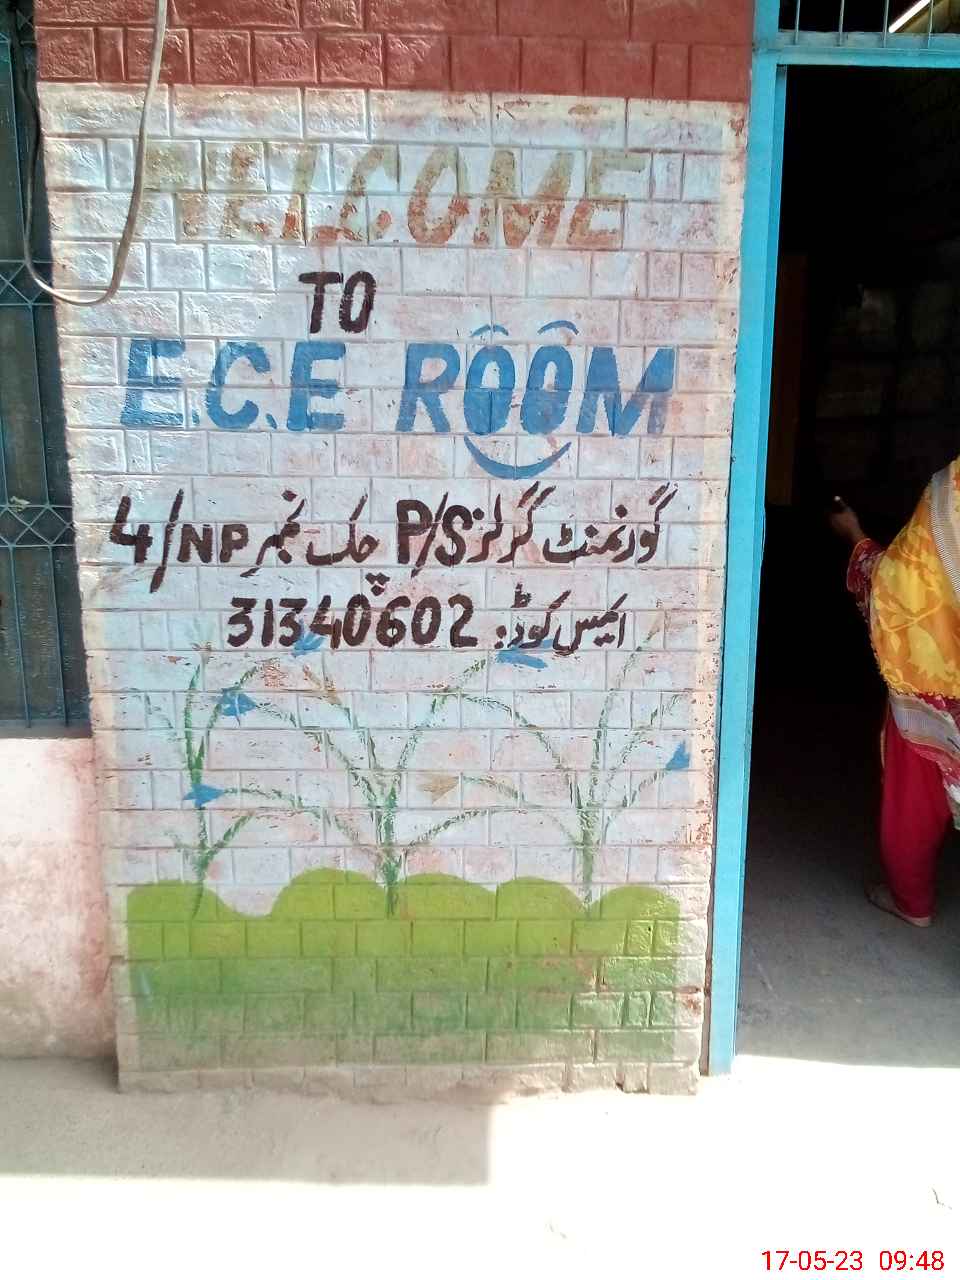 WELCOME
TO
E.C.E ROOM
گورنمنٹ گرلز P/S چک نمبر 4/NP
ایمس کوڈ: 31340602
17-05-23 09:48